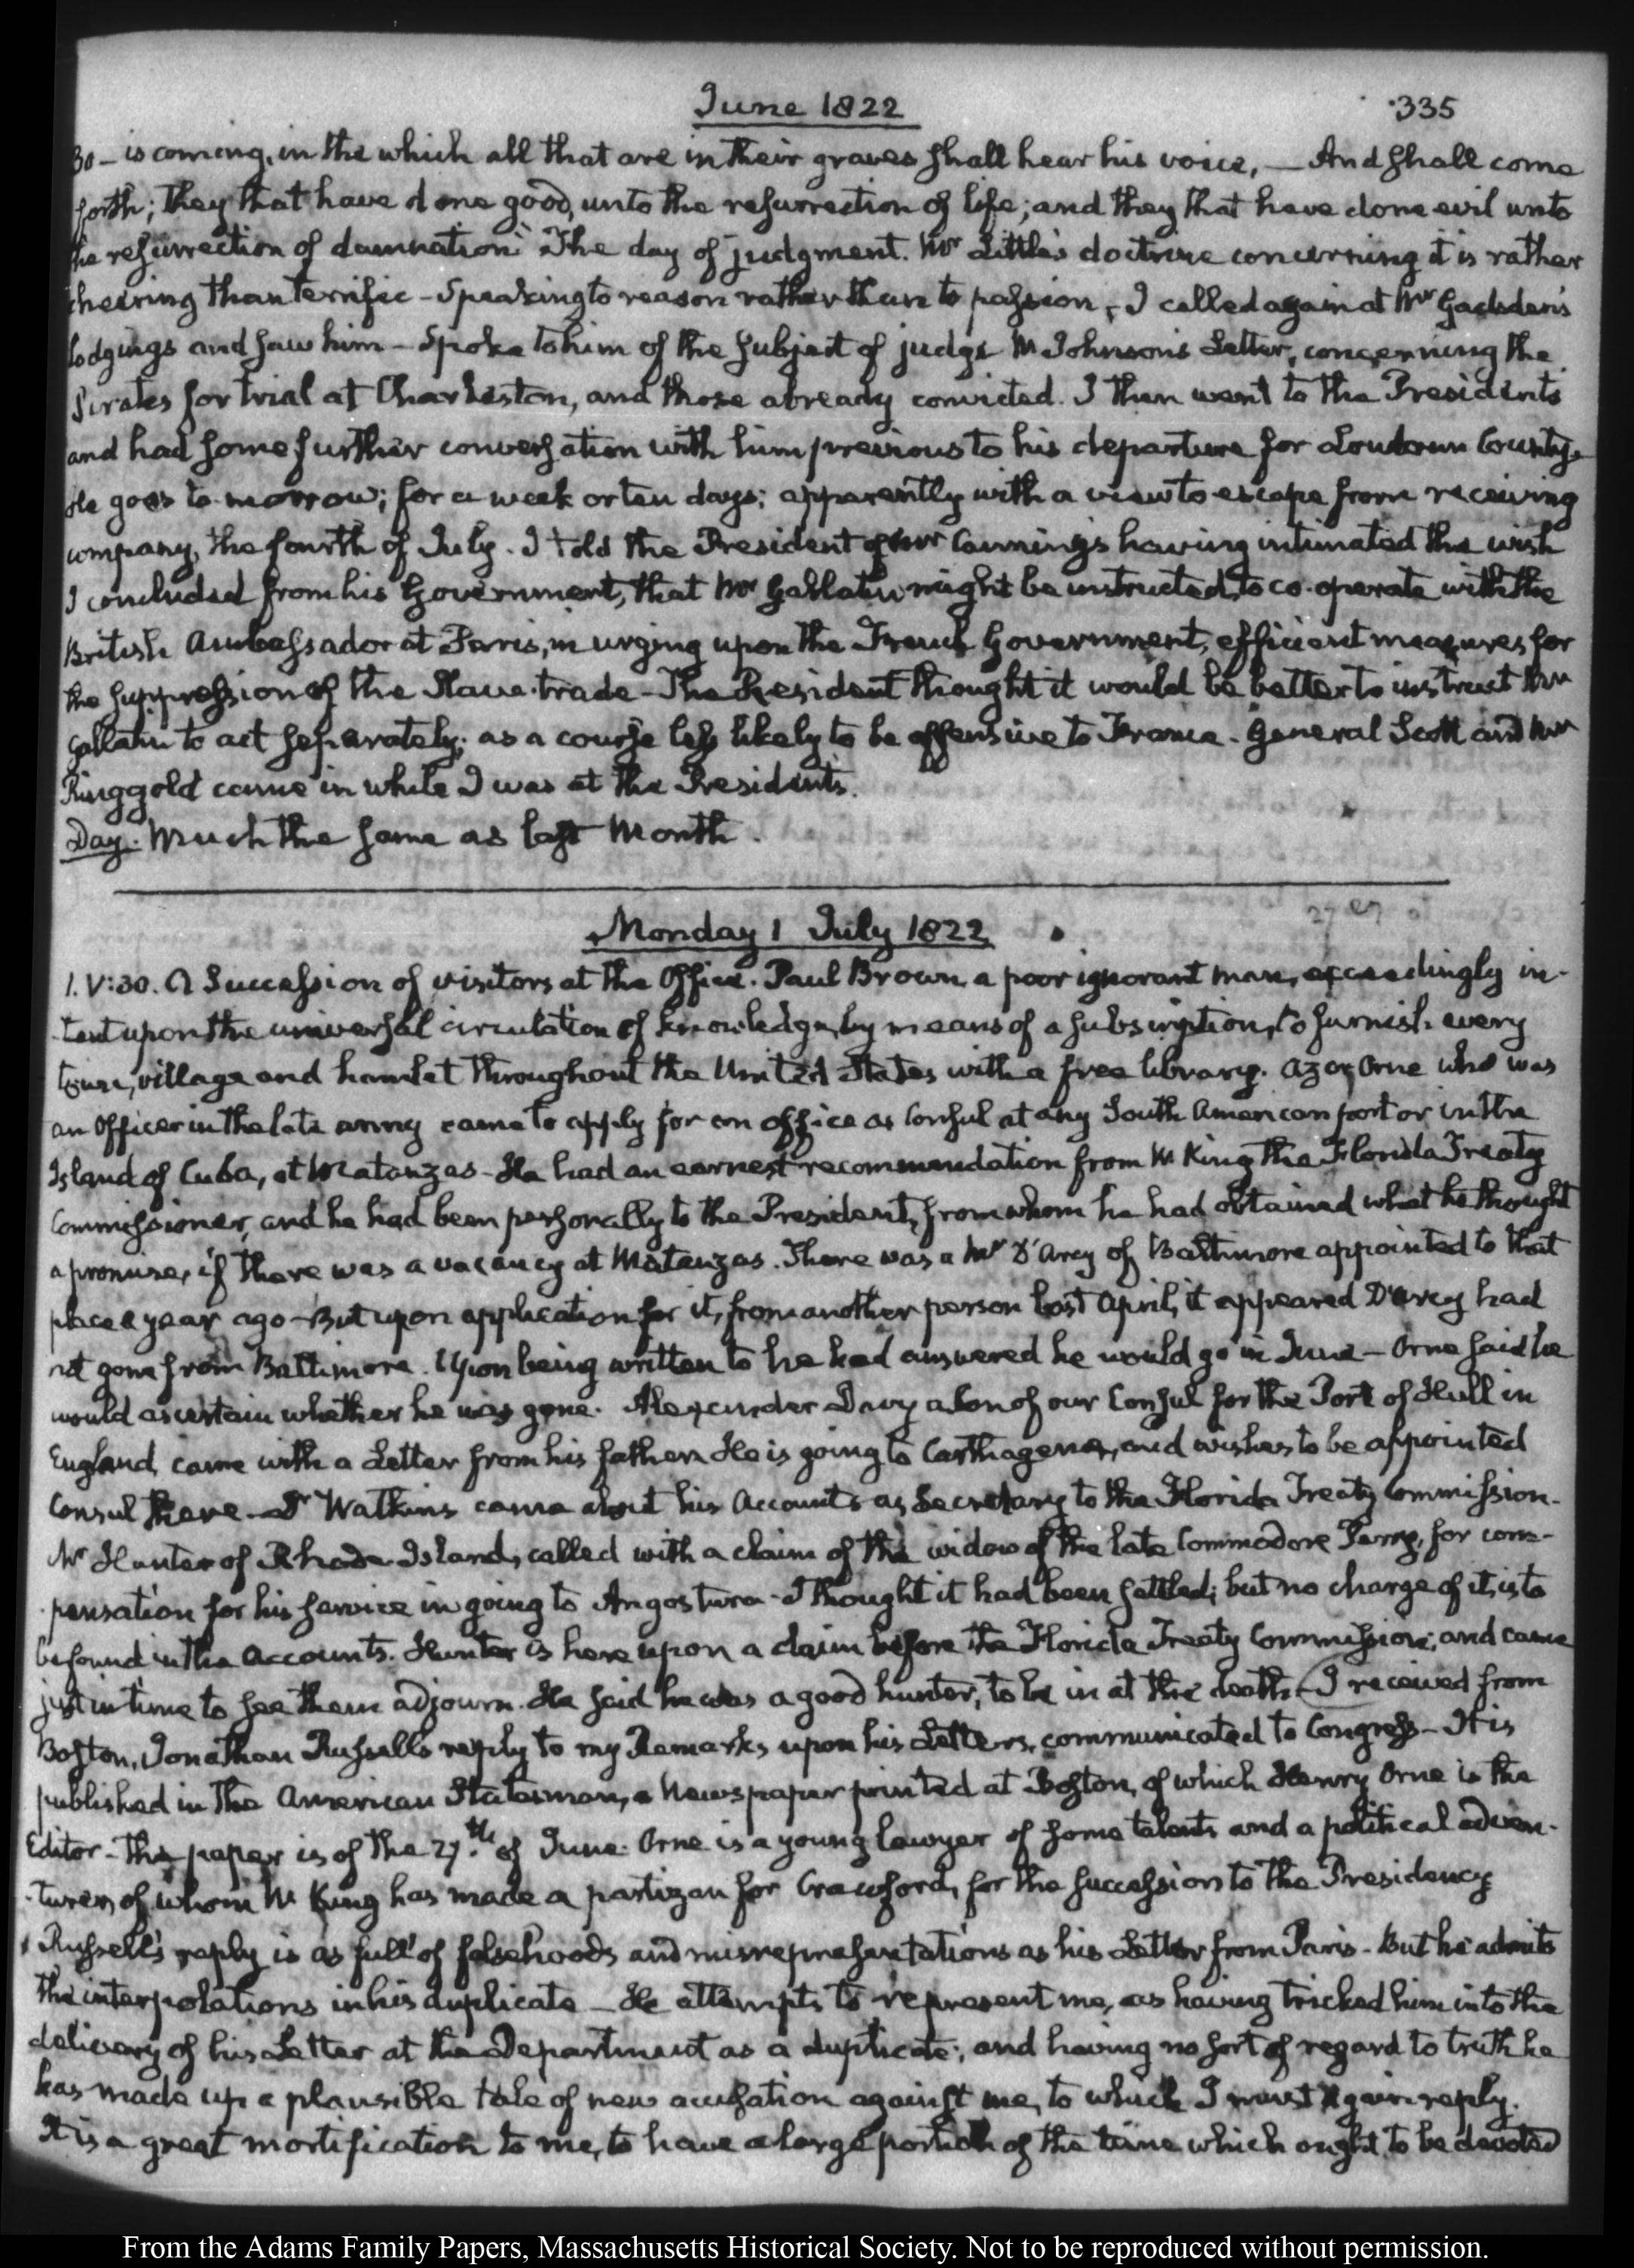 June 1822
335
30 – is coming, in the which all that are in their graves shall hear his voice, — And shall come
forth; they that have done good, unto the resurrection of life; and they that have done evil unto
the resurrection of damnation." The day of judgment. Mr Little's doctrine concerning it is rather
cheering than terrific – Speaking to reason rather than to passion – I called again at Mr Gadsden's
lodgings and saw him – Spoke to him of the subject of judge W Johnson's Letter, concerning the
Pirates for trial at Charleston, and those already convicted. I then went to the President's
and had some further conversation with him previous to his departure for Loudoun County.
He goes to-morrow; for a week or ten days; apparently with a view to escape from receiving
company, the fourth of July. I told the President of Mr Canning's having intimated the wish
I concluded from his Government, that Mr Gallatin might be instructed, to co-operate with the
British Ambassador at Paris, in urging upon the French Government, efficient measures for
the suppression of the Slave-trade – The President thought it would be better to instruct Mr
Gallatin to act separately; as a course less likely to be offensive to France – General Scott and Mr
Ringgold came in while I was at the President's.
Day. Much the same as last Month.
Monday 1 July 1822
1. V:30. A Succession of visitors at the Office. Paul Brown, a poor ignorant man, exceedingly in-
-tent upon the universal circulation of knowledge, by means of a subscription, to furnish every
town, village and hamlet throughout the United States with a free library. Azor Orne who was
an Officer in the late army came to apply for an office as Consul at any South American port or in the
Island of Cuba, at Matanzas – He had an earnest recommendation from W King the Florida Treaty
Commissioner, and he had been personally to the President, from whom he had obtained what he thought
a promise, if there was a vacancy at Matanzas. There was a Mr D'Arcy of Baltimore appointed to that
place a year ago – But upon application for it, from another person last April, it appeared D'Arcy had
not gone from Baltimore. Upon being written to he had answered he would go in June – Orne said he
would ascertain whether he was gone. Alexander Davy a Son of our Consul for the Port of Hull in
England, came with a Letter from his father. He is going to Carthagena, and wishes to be appointed
Consul there – Dr Watkins came about his Accounts as Secretary to the Florida Treaty Commission –
Mr Hunter of Rhode-Island, called with a claim of the widow of the late Commodore Perry, for com-
-pensation for his service in going to Angostura – I thought it had been settled; but no charge of it is to
be found in the Accounts. Hunter is here upon a claim before the Florida Treaty Commission; and came
just in time to see them adjourn. He said he was a good hunter, to be in at the death – I received from
Boston, Jonathan Russell's reply to my Remarks upon his Letters, communicated to Congress – It is
published in the American Statesman, a Newspaper printed at Boston, of which Henry Orne is the
Editor – The paper is of the 27.th of June. Orne is a young lawyer of some talents and a political adven-
-turer, of whom W King has made a partizan for Crawford, for the succession to the Presidency
Russell's reply is as full of falsehoods and misrepresentations as his Letter from Paris – But he admits
the interpolations in his duplicate – He attempts to represent me, as having tricked him into the
delivery of his Letter at the Department as a duplicate; and having no sort of regard to truth he
has made up a plausible tale of new accusation against me, to which I must again reply.
It is a great mortification to me, to have a large portion of the time which ought to be devoted
From the Adams Family Papers, Massachusetts Historical Society. Not to be reproduced without permission.